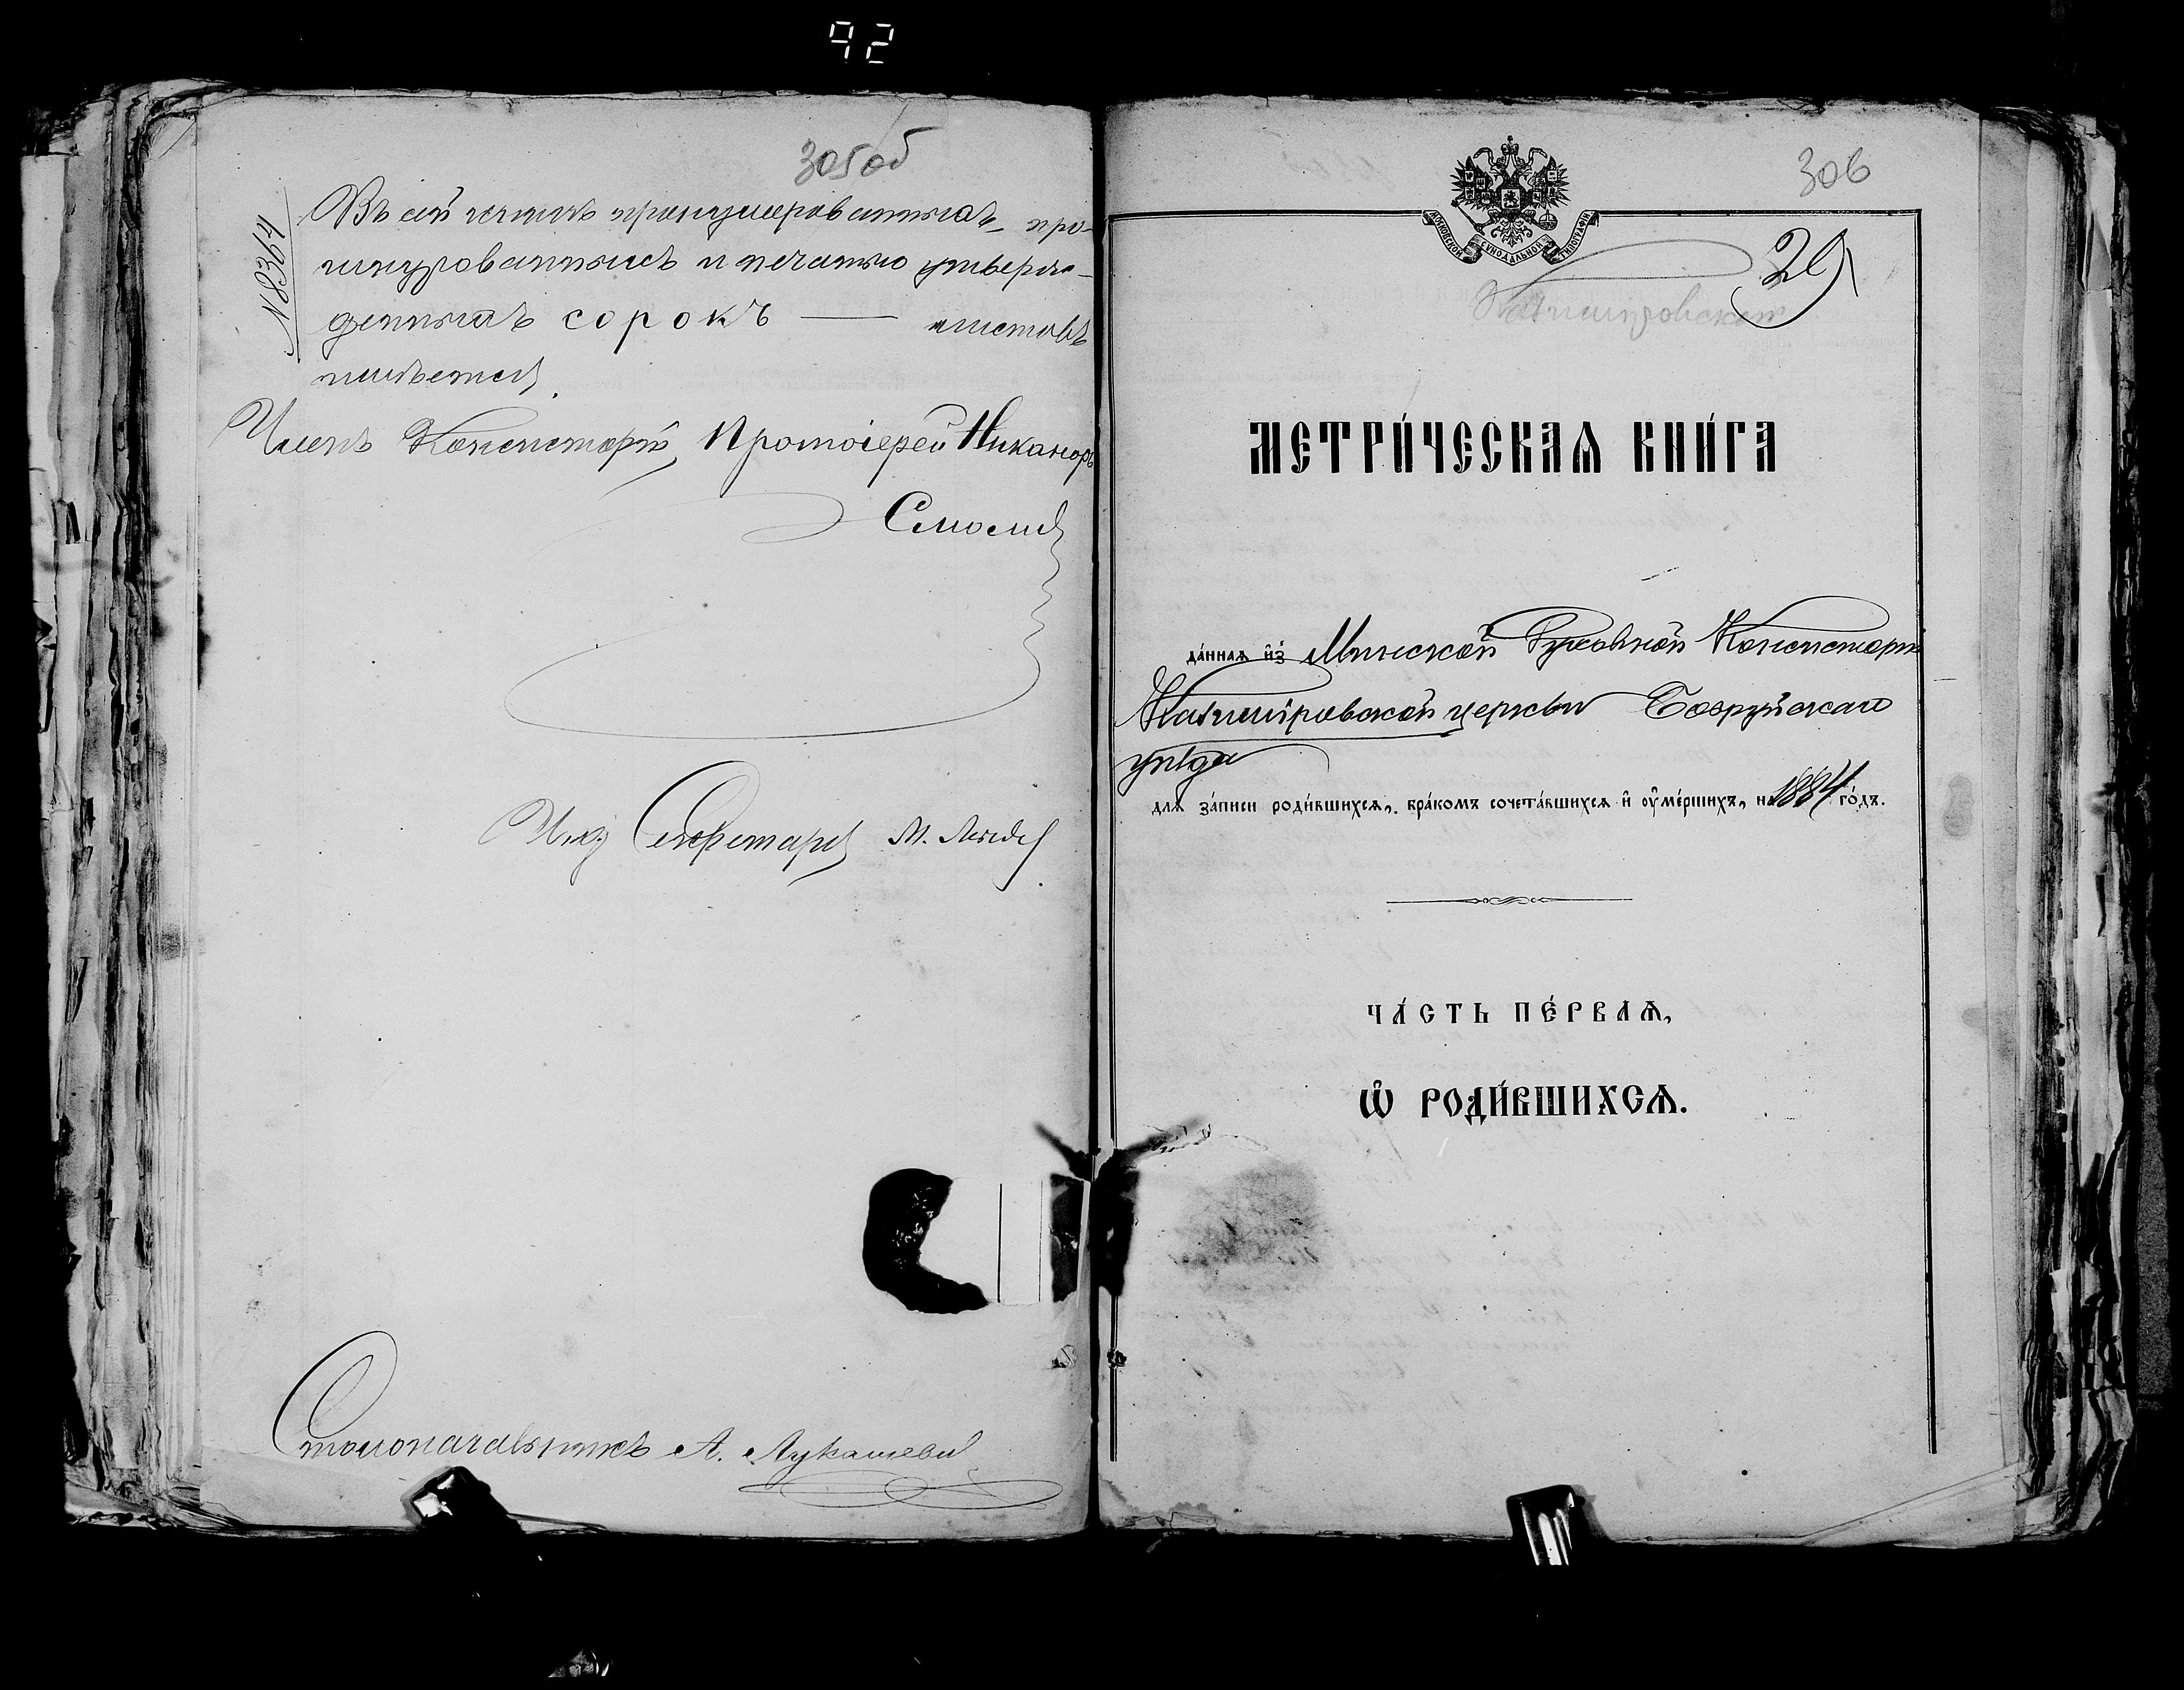 92
305об
№ 8364
Въ сей книгѣ пронумерованныхъ, про-
шнурованныхъ и печатью утверж-
денныхъ сорокъ — листовъ
имѣется.
Членъ Консисторіи, Протоіерей Никаноръ
Смолич
Секретарь М.
Столоначальникъ А. Лукашевич
306
МОСКОВСКОЙ СѴНОДАЛЬНОЙ ТИПОГРАФІИ
29
Казимировской
МЕТРИ́ЧЕСКАѦ КНИ́ГА
да́ннаѧ и҆з̾ Минской Духовной Консисторіи
Казимировской церкви Бобруйскаго
уѣзда
длѧ за́писи роди́вшихсѧ, бра́комъ сочета́вшихсѧ и҆ ᲂу҆ме́ршихъ, на 1884 го́дъ.
ЧА́СТЬ ПЕ́РВАѦ,
Ѡ҆ РОДИ́ВШИХСѦ.